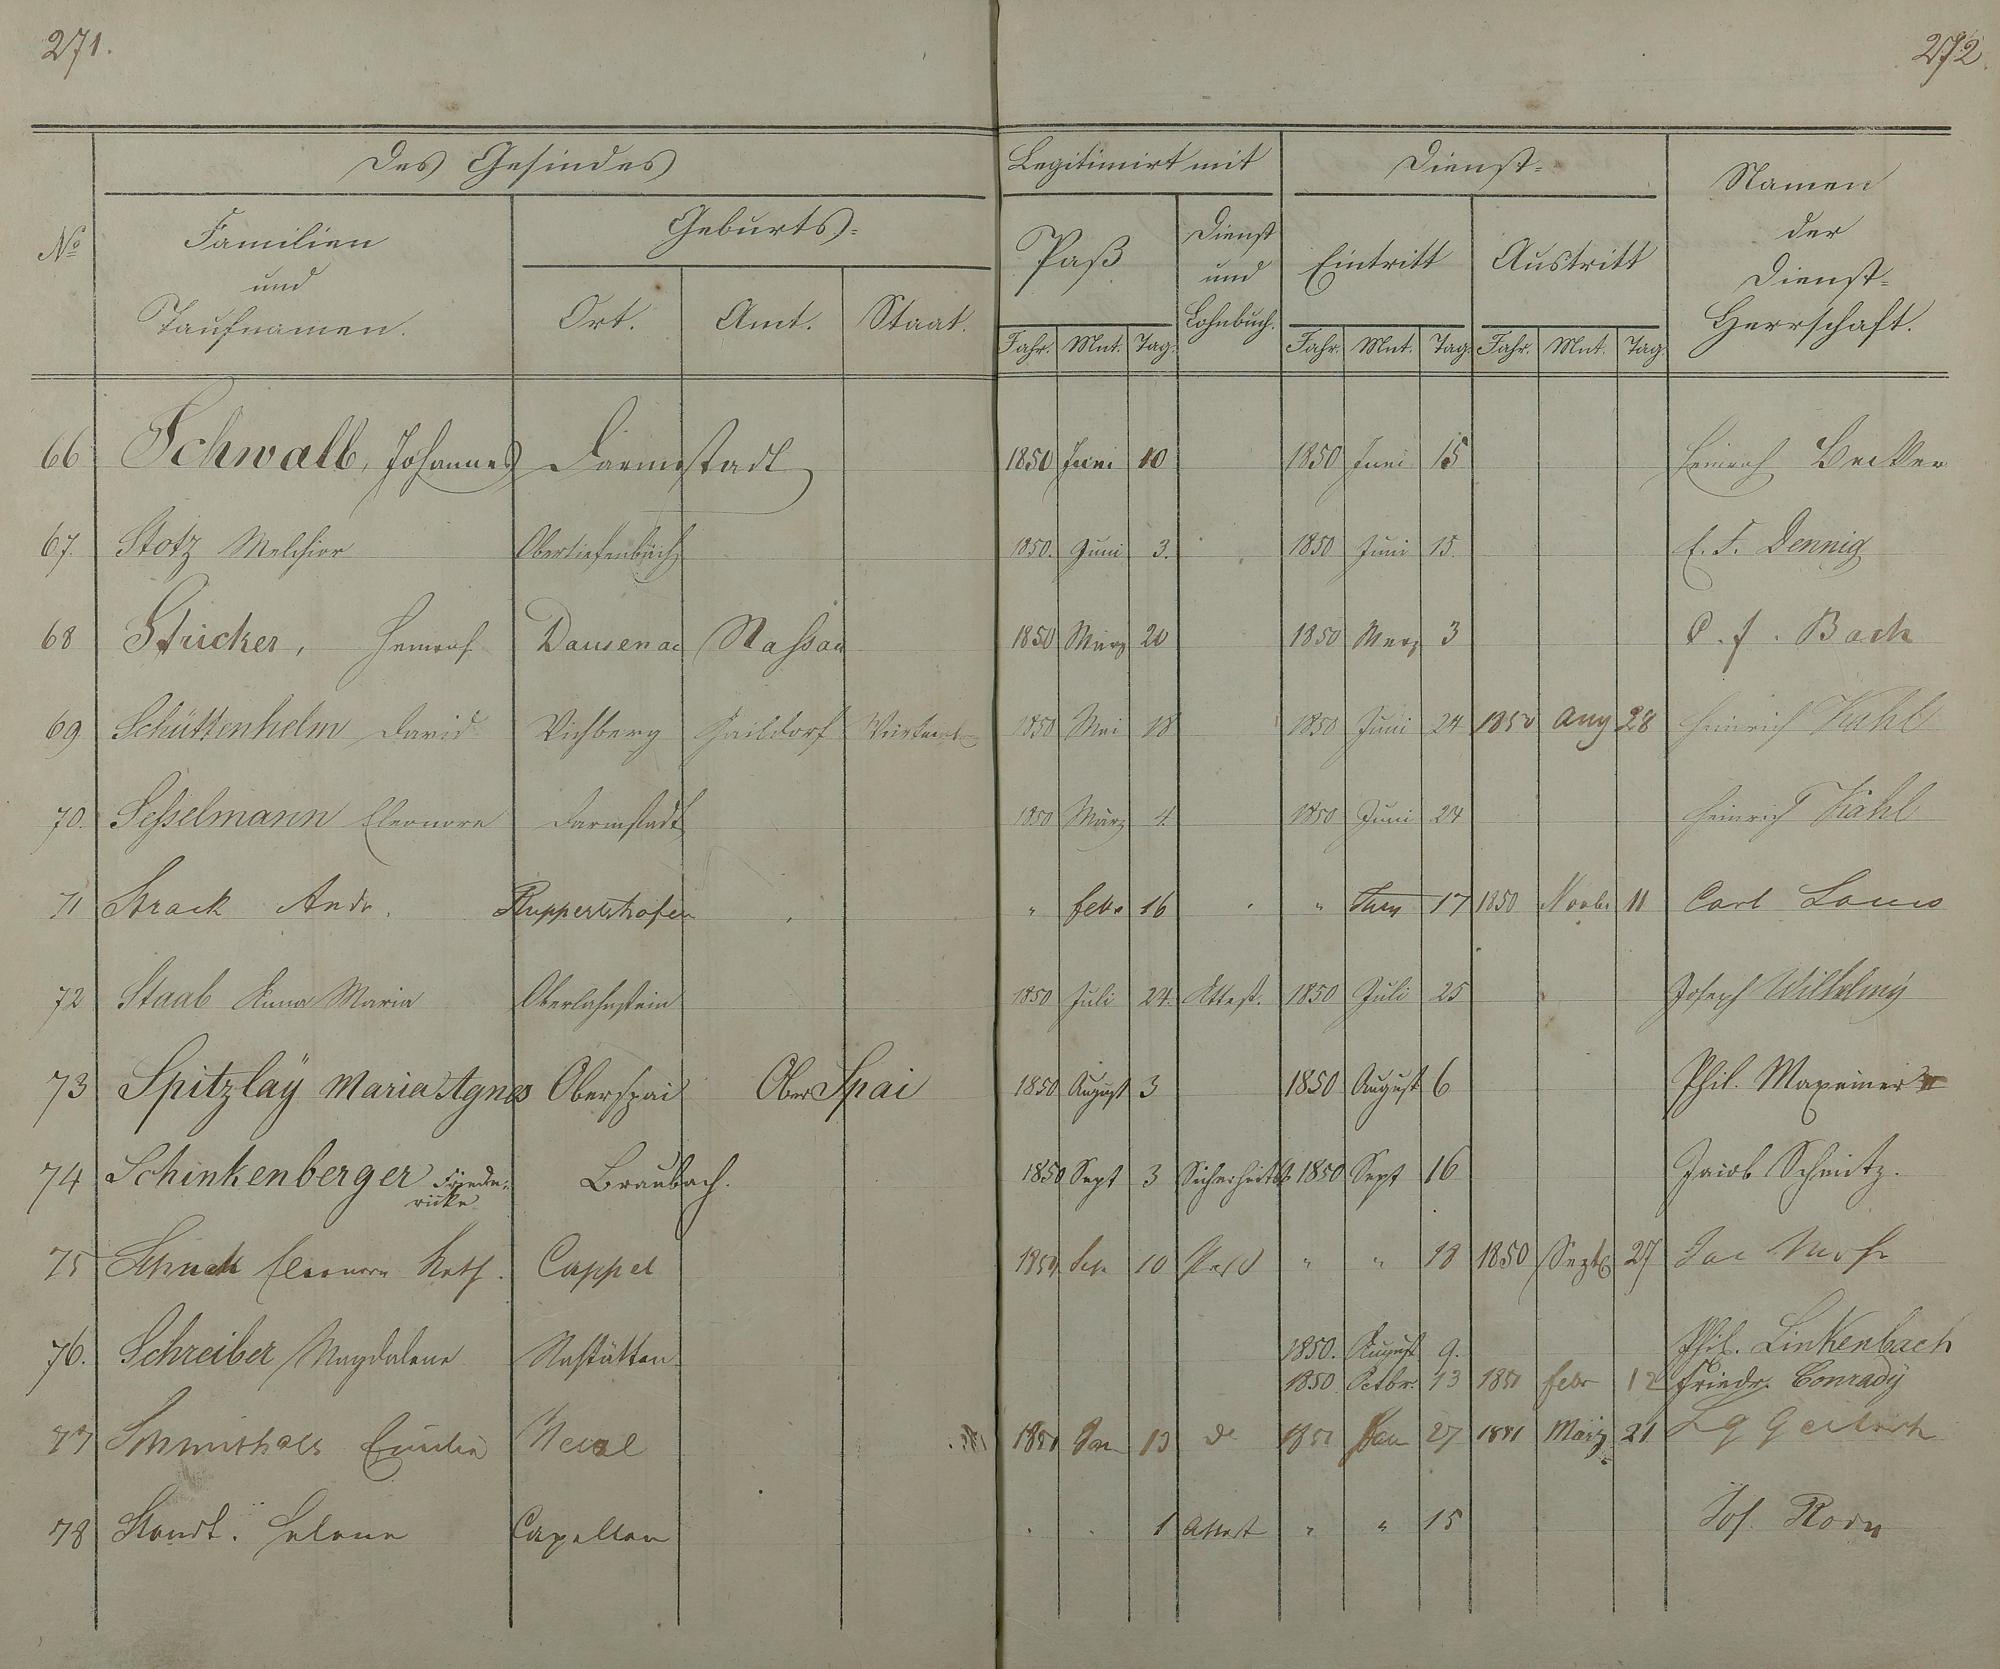 271.
272
Des Gesindes
Legitimirt mit
Dienst-
Namen
der
Dienst-
Herrschaft.
No
Familien
und
Taufnamen.
Geburts-
Ort. Amt. Staat.
Paß
Dienst
und
Lohnbuch.
Eintritt
Austritt
Jahr. Mnt. Tag. Jahr. Mnt. Tag. Jahr. Mnt. Tag.
66 Schwalb, Johannes Darmstadt 1850 Juni 10 1850 Juni 15 Heinrich Becker
67. Stotz Melchior Obertiefenbach 1850. Juni 3. 1850 Juni 15. C. F. Dennig
68 Stricker, Heinrich Dausenau Nassau 1850 März 20 1850 Merz 3 C. F. Bach
69 Schüttenhelm David Vichberg Gaildorf 1850 Mai 18 1850 Juni 24 1850 Aug 28 Heinrich Kahl
70. Sesselmann Eleonore Darmstadt 1850 März 4. 1850 Juni 24 Heinrich Kahl
71 Strack Andr. Ruppertshofen " Febr 16 " 17 1850 Novbr 11 Carl
72 Staab Anna Maria Oberlahnstein 1850 Juli 24. Attest. 1850 Juli 25 Joseph Wilhelmy
73 Spitzlaÿ Maria Agnes Oberspai Ober Spai 1850 August 3 1850 August 6 Phil. Maxeiner
74 Schinkenberger Friede-
ricke Braubach. 1850 Sept 3 1850 Sept 16 Jacob Schmitz.
75 Schuck Eleonore Kath. Cappel 1850 10 " " 18 1850 Septb 27 Jac
76. Schreiber Magdalene Nastätten 1850. August 9. Phil. Linkenbach
1850. Octbr. 13 1851 Febr 12 Friedr. Conrady
77 1851 Jan 13 1851 Jan 27 1851 März 21
78 Capellen 1 Attest " " 15 Jos.